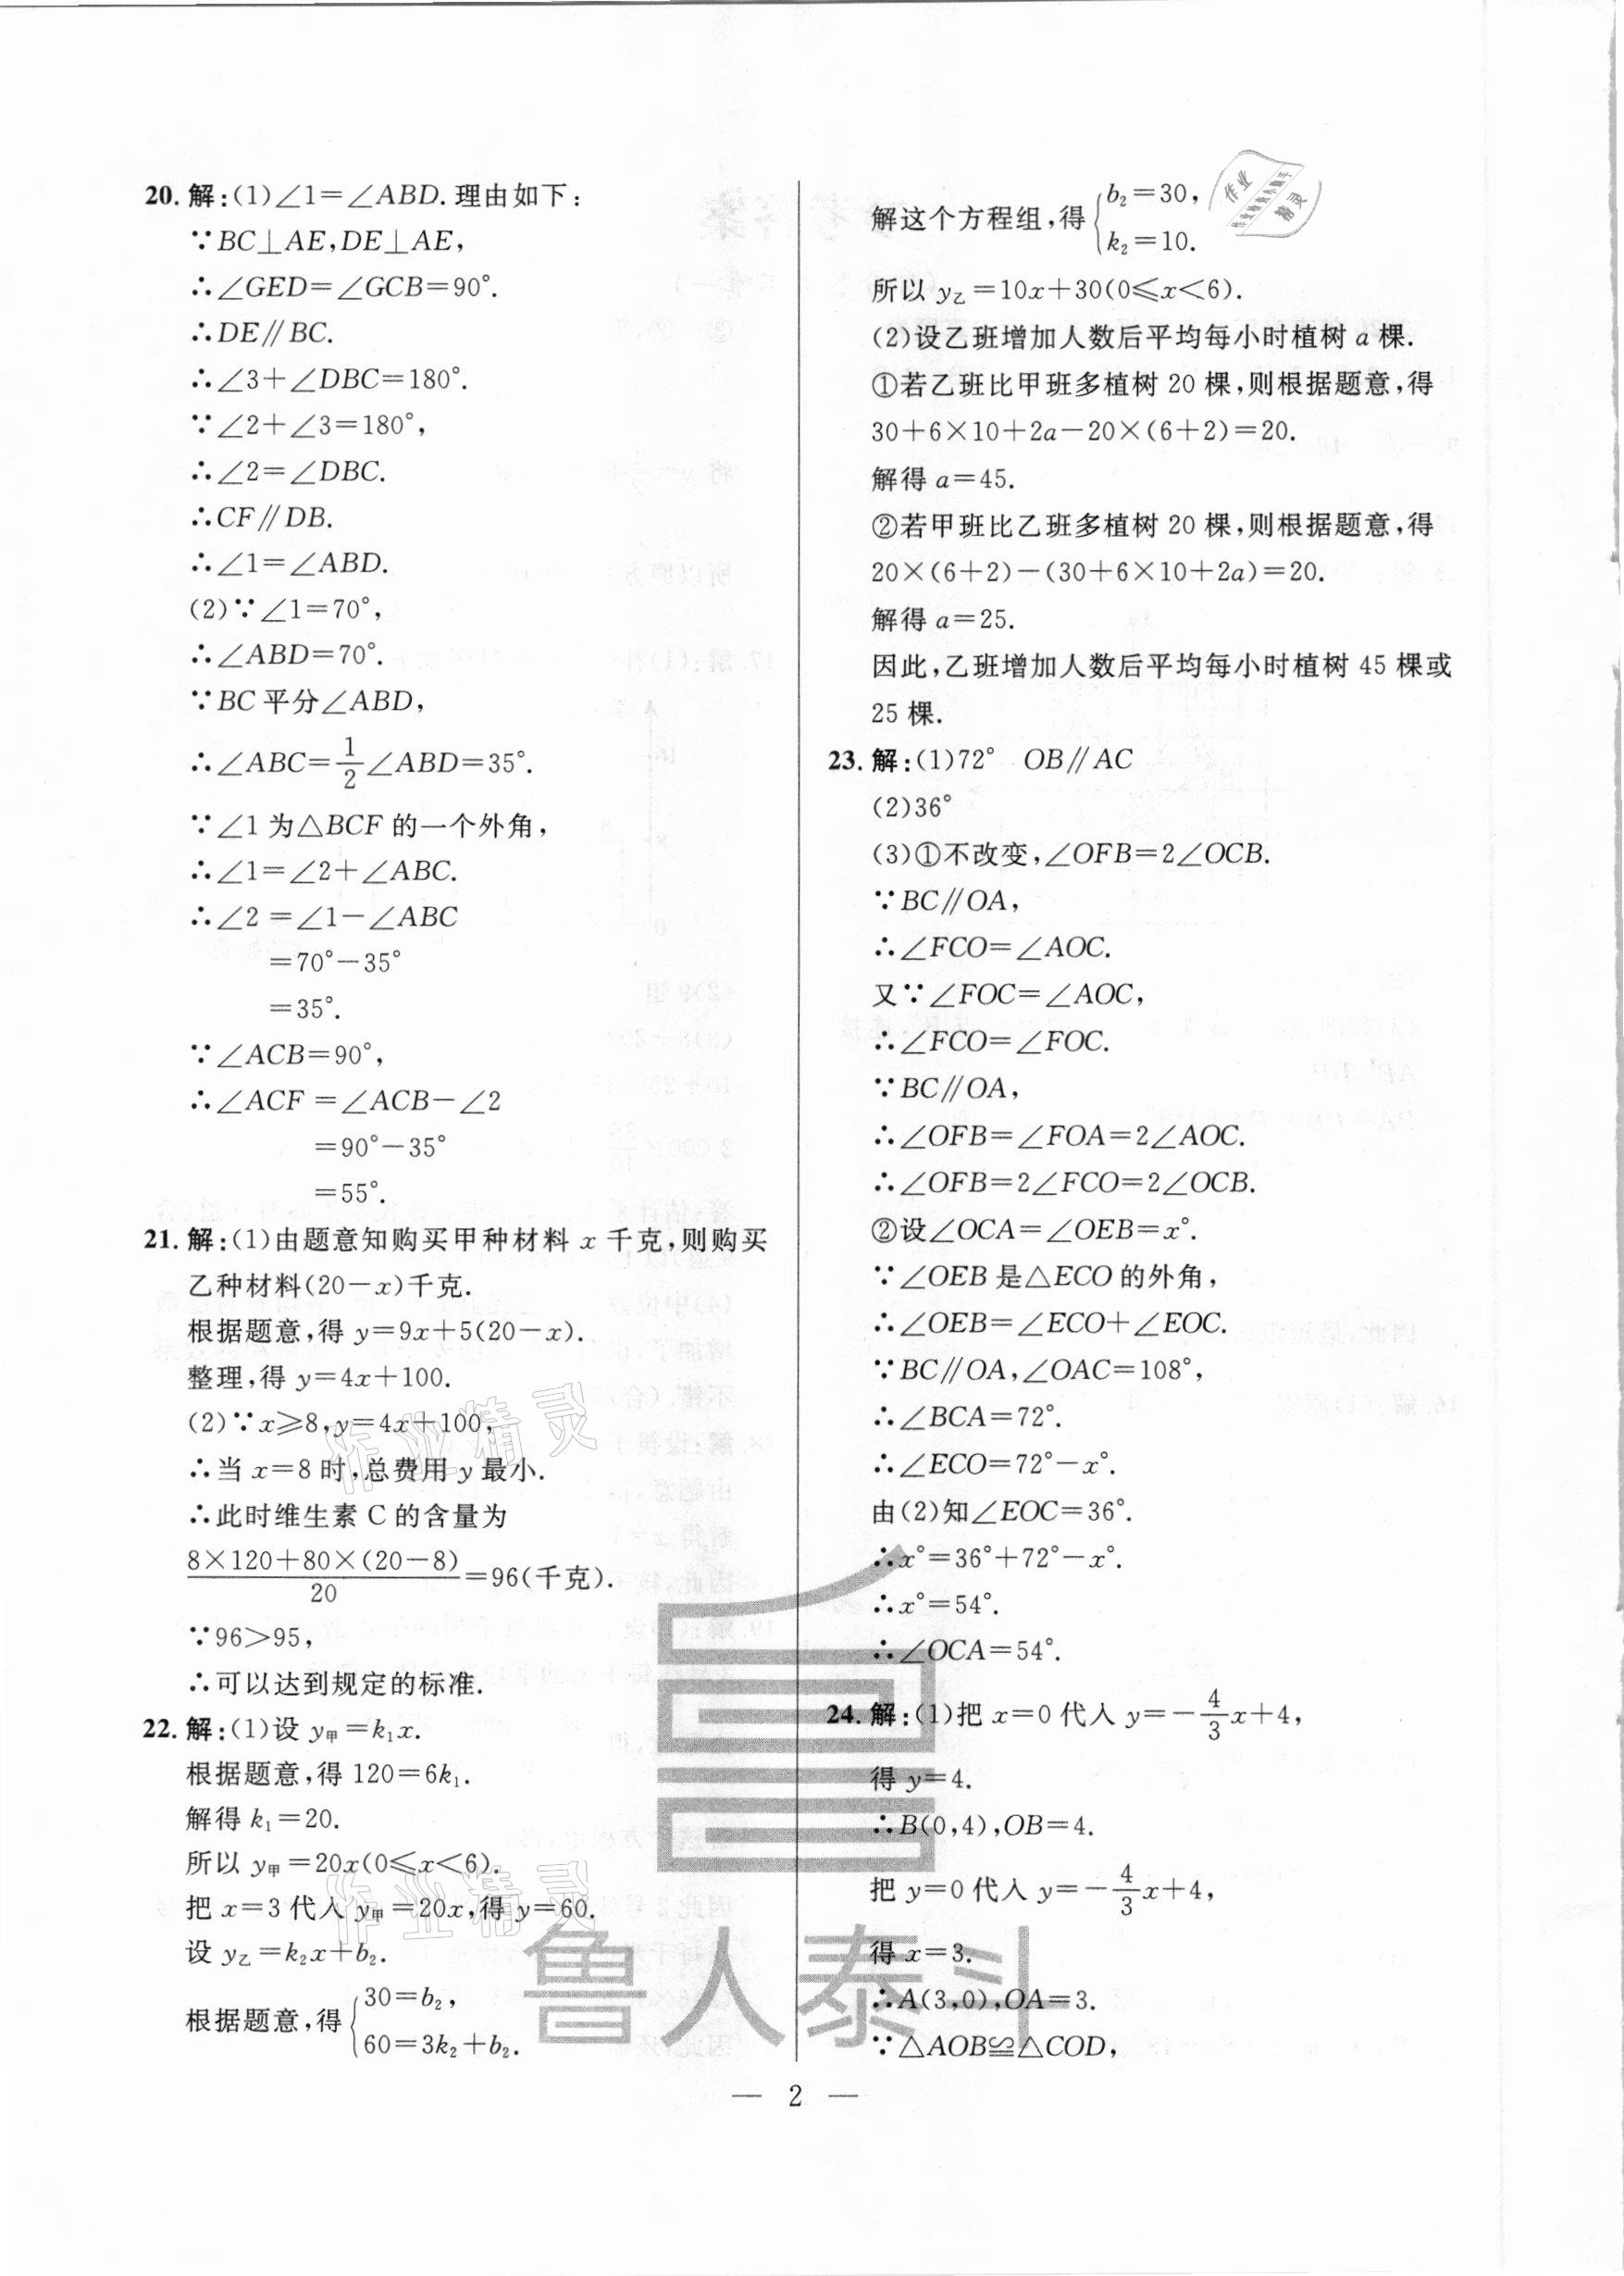 20. 解:(1)∠1=∠ABD.理由如下:
∵BC⊥AE,DE⊥AE,
∴∠GED=∠GCB=90°.
∴DE∥BC.
∴∠3+∠DBC=180°.
∵∠2+∠3=180°,
∴∠2=∠DBC.
∴CF∥DB.
∴∠1=∠ABD.
(2)∵∠1=70°,
∴∠ABD=70°.
∵BC平分∠ABD,
∴∠ABC=1/2∠ABD=35°.
∵∠1为△BCF的一个外角,
∴∠1=∠2+∠ABC.
∴∠2=∠1-∠ABC
=70°-35°
=35°.
∵∠ACB=90°,
∴∠ACF=∠ACB-∠2
=90°-35°
=55°.
21. 解:(1)由题意知购买甲种材料x千克,则购买
乙种材料(20-x)千克.
根据题意,得y=9x+5(20-x).
整理,得y=4x+100.
(2)∵x≥8,y=4x+100,
∴当x=8时,总费用y最小.
∴此时维生素C的含量为
(8×120+80×(20-8))/20=96(千克).
∵96>95,
∴可以达到规定的标准.
22. 解:(1)设y甲=k₁x.
根据题意,得120=6k₁.
解得k₁=20.
所以y甲=20x(0≤x<6).
把x=3代入y甲=20x,得y=60.
设y乙=k₂x+b₂.
根据题意,得{30=b₂,
60=3k₂+b₂.
解这个方程组,得{b₂=30,
k₂=10.
所以y乙=10x+30(0≤x<6).
(2)设乙班增加人数后平均每小时植树a棵.
①若乙班比甲班多植树20棵,则根据题意,得
30+6×10+2a-20×(6+2)=20.
解得a=45.
②若甲班比乙班多植树20棵,则根据题意,得
20×(6+2)-(30+6×10+2a)=20.
解得a=25.
因此,乙班增加人数后平均每小时植树45棵或
25棵.
23. 解:(1)72° OB∥AC
(2)36°
(3)①不改变,∠OFB=2∠OCB.
∵BC∥OA,
∴∠FCO=∠AOC.
又∵∠FOC=∠AOC,
∴∠FCO=∠FOC.
∵BC∥OA,
∴∠OFB=∠FOA=2∠AOC.
∴∠OFB=2∠FCO=2∠OCB.
②设∠OCA=∠OEB=x°.
∵∠OEB是△ECO的外角,
∴∠OEB=∠ECO+∠EOC.
∵BC∥OA,∠OAC=108°,
∴∠BCA=72°.
∴∠ECO=72°-x°.
由(2)知∠EOC=36°.
∴x°=36°+72°-x°.
∴x°=54°.
∴∠OCA=54°.
24. 解:(1)把x=0代入y=-4/3x+4,
得y=4.
∴B(0,4),OB=4.
把y=0代入y=-4/3x+4,
得x=3.
∴A(3,0),OA=3.
∵△AOB≌△COD,
— 2 —
作业精灵
作业精灵
作业
精灵
鲁人泰斗